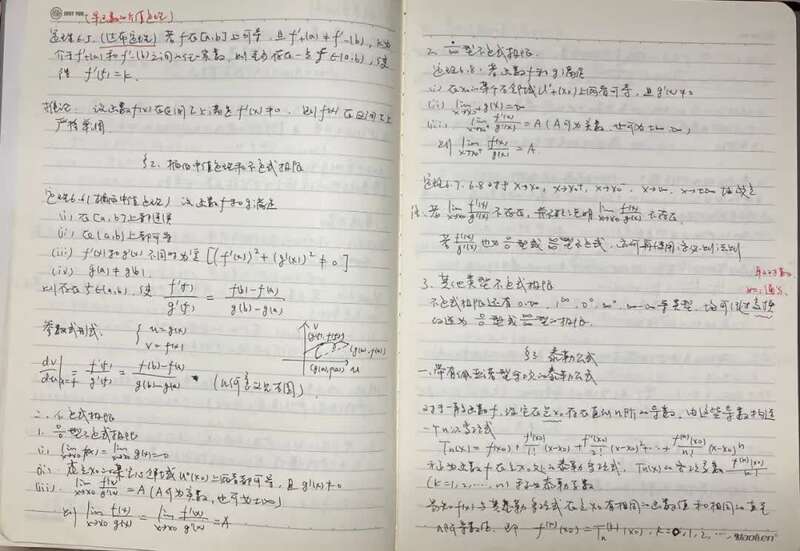 (导函数介值定理)
定理6.5.(达布定理) 若f在[a,b]上可导,且f'₊(a)≠f'₋(b),k为
介于f'₊(a)和f'₋(b)之间任一实数,则至少存在一点ξ∈(a,b),使
得 f'(ξ)=k.
推论: 设函数f(x)在区间I上满足f'(x)≠0,则f(x)在区间I上
严格单调
§2. 柯西中值定理和不定式极限
定理6.6(柯西中值定理) 设函数f和g满足
(i) 在[a,b]上都连续
(ii) 在(a,b)上都可导
(iii) f'(x)和g'(x)不同时为零 [(f'(x))²+(g'(x))²≠0]
(iv) g(a)≠g(b).
则存在ξ∈(a,b), 使 f'(ξ)/g'(ξ) = (f(b)-f(a))/(g(b)-g(a))
参数式形式: { u=g(x) v=f(x)
v
u
dv/du|x=ξ = f'(ξ)/g'(ξ) = (f(b)-f(a))/(g(b)-g(a))
二. 不定式极限
1. 0/0型不定式极限
(i) lim x→x₀ f(x) = lim x→x₀ g(x)=0
(ii) 在点x₀的某空心邻域U°(x₀)上两者都可导,且g'(x)≠0
(iii) lim x→x₀ f'(x)/g'(x) = A (A可为实数,也可为±∞,∞)
则 lim x→x₀ f(x)/g(x) = lim x→x₀ f'(x)/g'(x) = A
2. ·/∞型不定式极限.
定理6.8. 若函数f和g满足
(i) 在x₀的某个右邻域U°₊(x₀)上两者可导,且g'(x)≠0
(ii) lim x→x₀⁺ g(x)=∞
(iii) lim x→x₀⁺ f'(x)/g'(x) = A (A可为实数,也可为±∞,∞)
则 lim x→x₀⁺ f(x)/g(x) = A
定理6.7, 6.8对于x→x₀, x→x₀⁺, x→x₀⁻, x→∞, x→±∞均成立
注. 若 lim x→x₀ f'(x)/g'(x) 不存在,并不能说明 lim x→x₀ f(x)/g(x) 不存在
若 f'(x)/g'(x) 也为0/0型或∞/∞型不定式,可再使用洛必达法则
3. 其他类型不定式极限
不定式极限还有0·∞, 1^∞, 0⁰, ∞⁰, ∞-∞等类型,均可经过变换
化为0/0型或∞/∞型极限.
§3 泰勒公式
一. 带有佩亚诺型余项的泰勒公式
对于一般函数f,设它在点x₀存在直到n阶的导数,由这些导数构造
一个n次多项式
Tₙ(x)=f(x₀)+f'(x₀)/1!(x-x₀)+f''(x₀)/2!(x-x₀)²+…+f⁽ⁿ⁾(x₀)/n!(x-x₀)ⁿ
称为函数f在点x₀处的泰勒多项式,Tₙ(x)的各项系数
(k=1,2,…,n)称为泰勒系数
易知f(x)与其泰勒多项式在点x₀有相同的函数值和相同的直至
n阶导数值,即 f⁽ᵏ⁾(x₀)=Tₙ⁽ᵏ⁾(x₀), k=0,1,2,…